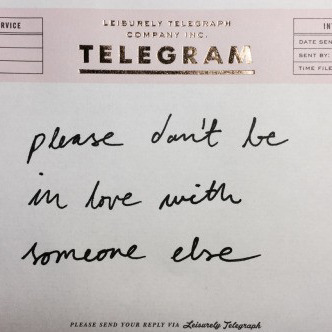 LEISURELY TELEGRAPH
COMPANY INC.
TELEGRAM
RVICE
IN
DATE SEN
SENT BY:
TIME FILE
please don't be
in love with
someone else
PLEASE SEND YOUR REPLY VIA Leisurely Telegraph